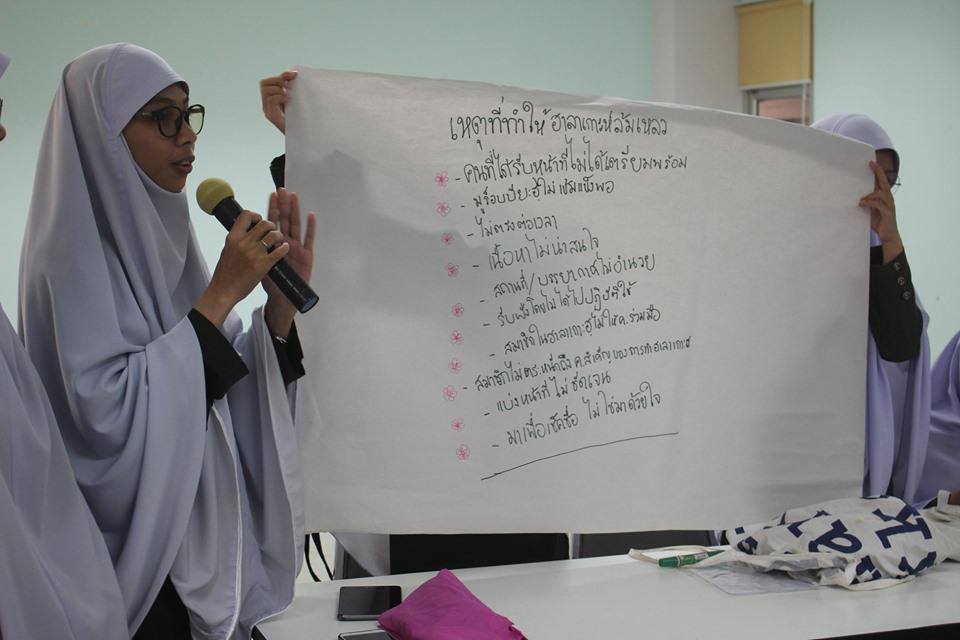 เหตุที่ทำให้ ฮาลาเกาะห์ล้มเหลว
- คนที่ได้รับหน้าที่ไม่ได้เตรียมพร้อม
- มูร็อบบียะฮฺไม่เข้มแข็งพอ
- ไม่ตรงต่อเวลา
- เนื้อหาไม่น่าสนใจ
- สถานที่/บรรยากาศไม่อำนวย
- รับฟังโดยไม่ได้ไปปฏิบัติใช้
- สมาชิกในฮาลาเกาะฮฺไม่ให้ค.ร่วมมือ
- สมาชิกไม่ตระหนักถึง ค.สำคัญของการทำฮาลาเกาะฮ
- แบ่งหน้าที่ไม่ ชัดเจน
- มาเพื่อเช็คชื่อ ไม่ใช่มาด้วยใจ